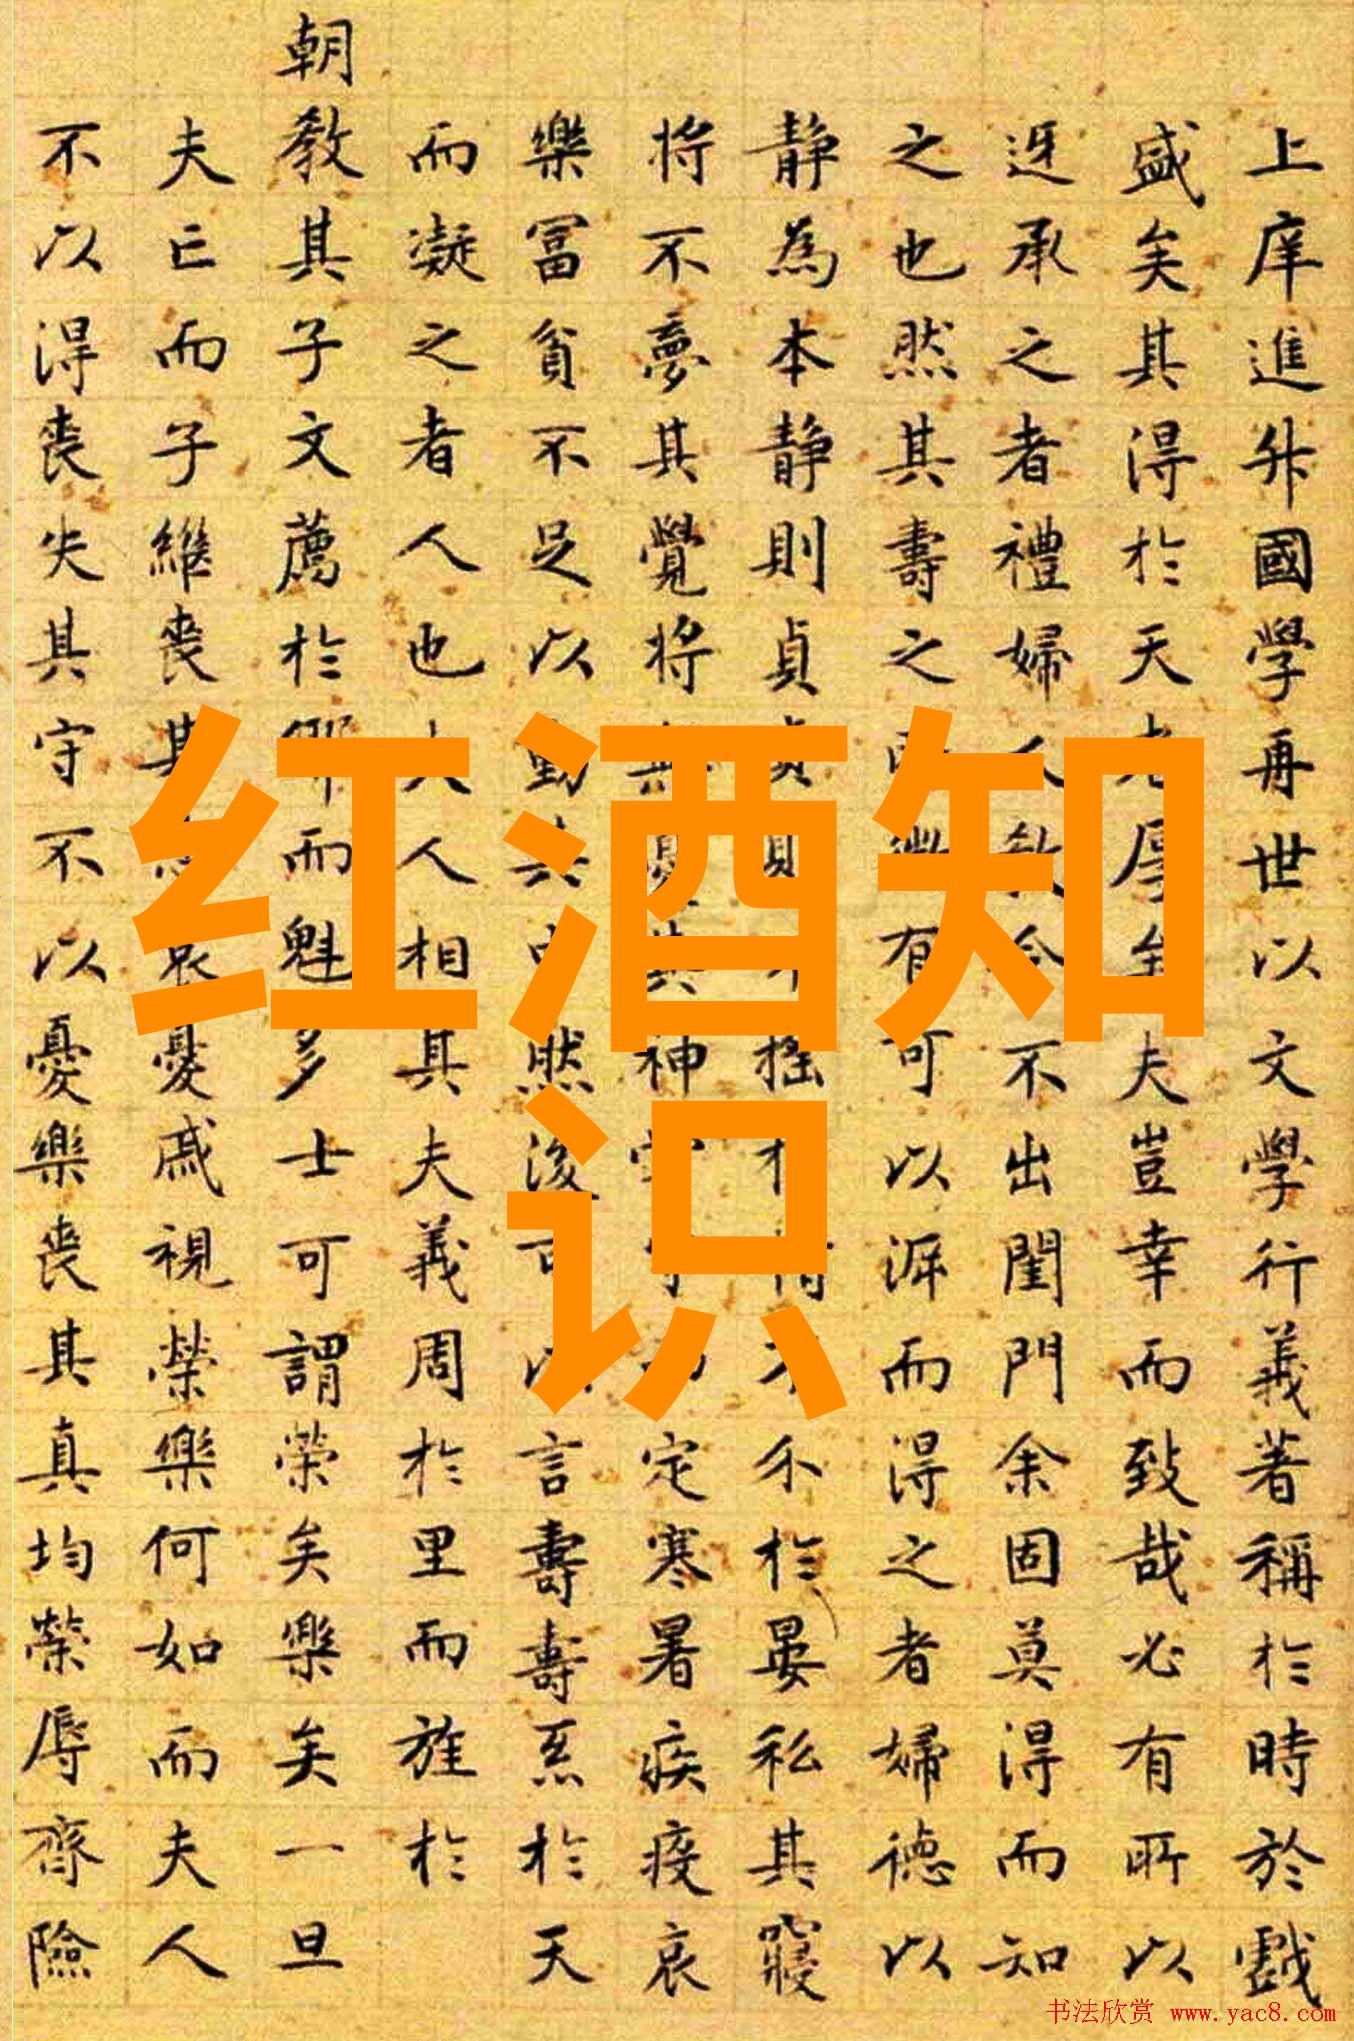 上庠進升國學再世以文學行義著稱於時於戲
盛矣其得於天者厚矣夫豈幸而致哉必有所以
迓承之者禮婦人教令不出閨門余固莫得而知
之也然其壽之有可以涯而得之者婦德以
静為本静則貞貞則不搖於不於晏私其寢
将不夢其覺将其神定寒暑疾疫哀
樂冨貧不足以動其中然後可以言壽壽系於天
而凝之者人也夫人相其夫義周於里而旌於
朝教其子文薦於鄉而魁多士可謂荣矣樂矣一旦
夫亡而子繼喪其哀憂戚視榮樂何如而夫人
不以得喪失其守不以憂樂喪其真均榮辱齊險
红酒知
识
书法欣赏 www.yac8.com